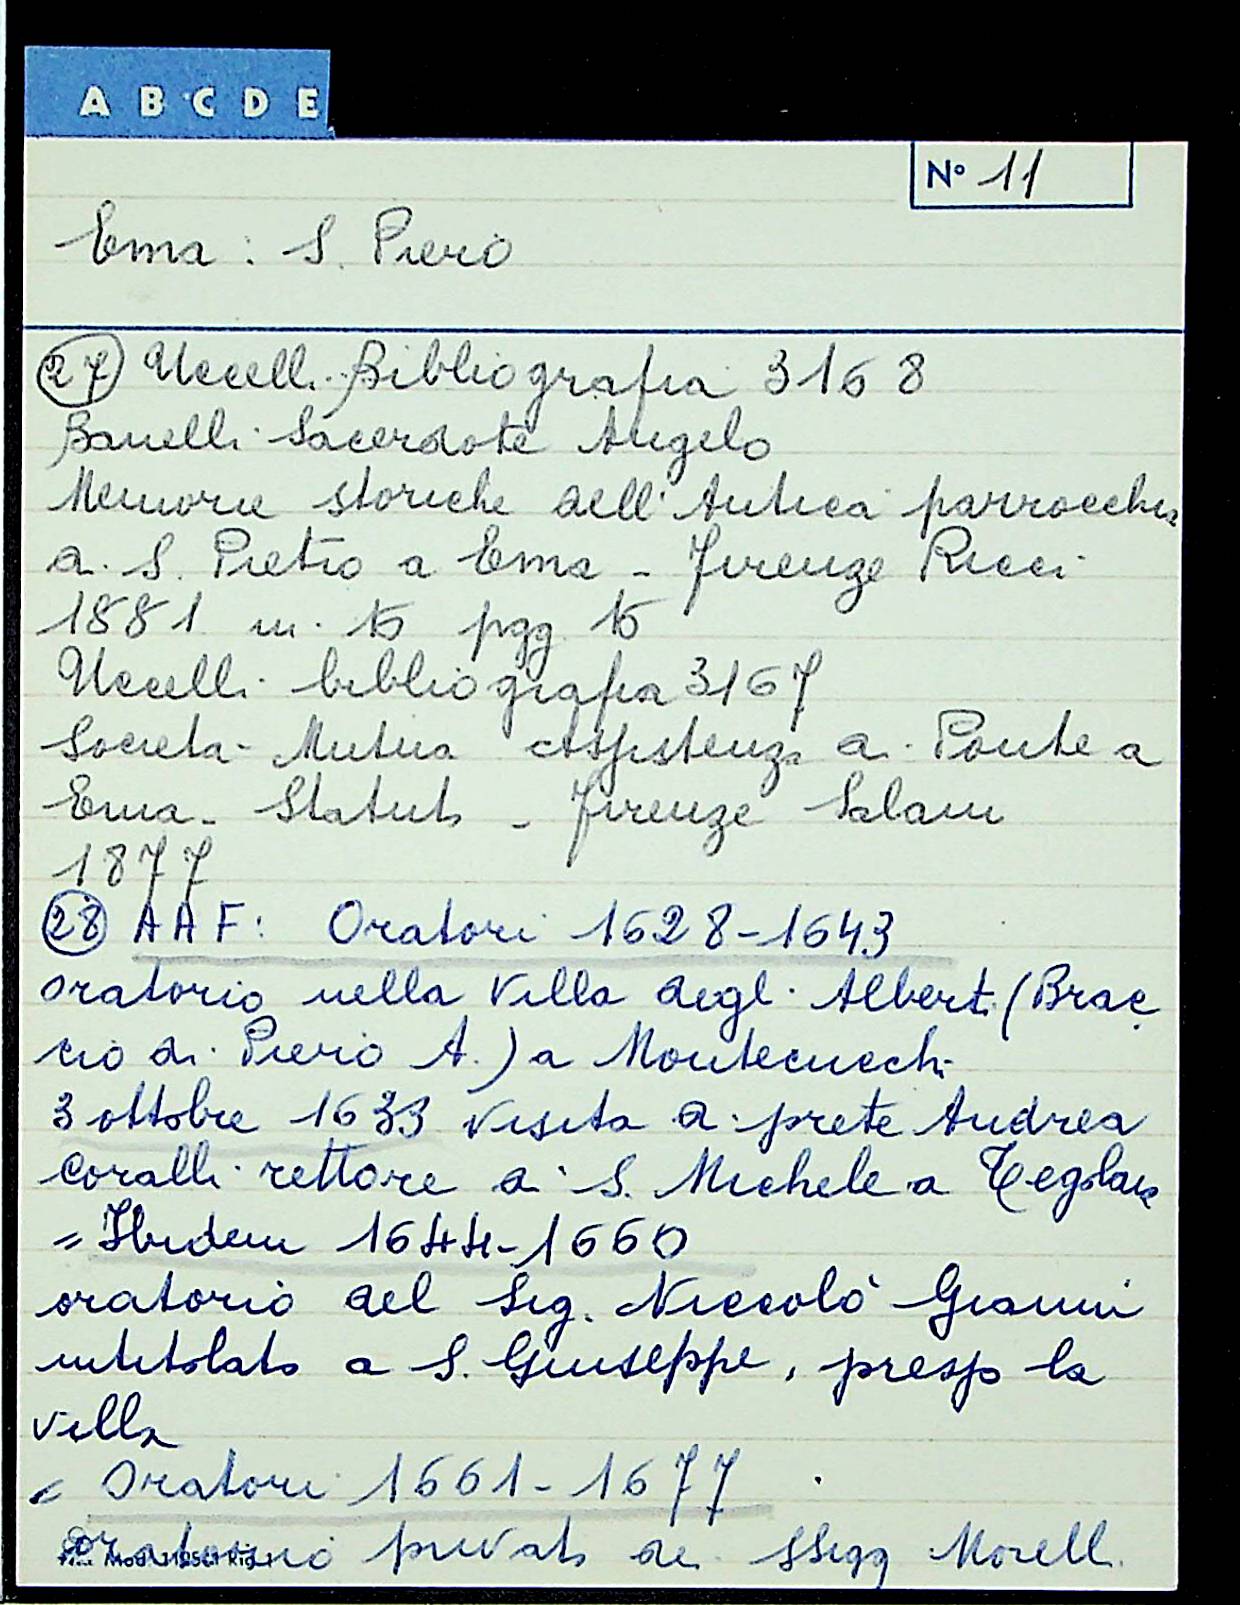 A B C D E
N° 11
Ema: S. Piero
27 Uccelli Bibliografia 3168
Sacerdote Angelo
Memorie storiche dell'Antica parrocchia
di S. Pietro a Ema - Firenze Ricci
1881 in. 16 pgg 16
Uccelli bibliografia 3167
Società Mutua Assistenza di Ponte a
Ema - Statuto - Firenze Salani
1877
28 AAF: Oratori 1628-1643
oratorio nella Villa degli Alberti (Brac
cio di Piero A.) a Montecucchi
3 ottobre 1633 visita di prete Andrea
Coralli rettore di S. Michele a
= Ibidem 1644-1660
oratorio del Sig. Niccolò Giannini
intitolato a S. Giuseppe, presso la
villa
= Oratori 1661-1677
oratorio privato dei SSigg Morelli